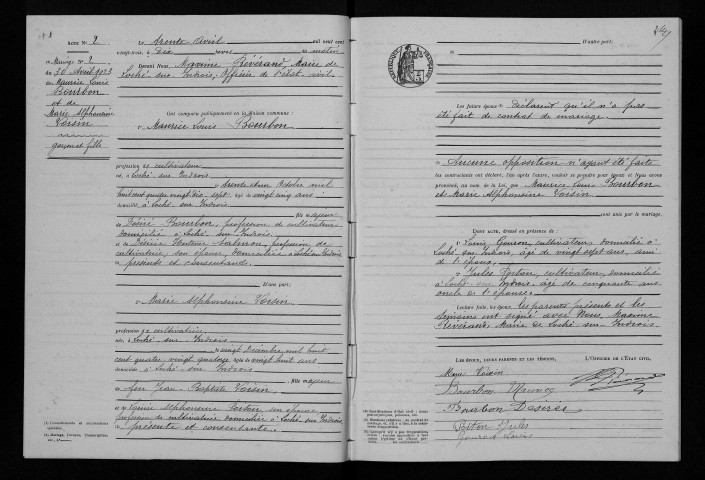 Acte N° 2
Mariage N° 2
du 30 Avril 1923
Maurice Louis
Bourbon
et de
Marie Alphonsine
Voisin
garçon et fille
Le trente Avril mil neuf cent
vingt-trois, à dix heures du matin
Devant Nous, Maxime Révérand, Maire de
Loché sur Indrois, Officier de l'état civil
Ont comparu publiquement en la Maison commune :
Maurice Louis Bourbon
profession de cultivateur
né, à Loché sur Indrois
le trente et un Octobre mil
huit cent quatre vingt dix sept, âgé de vingt cinq ans
domicilié à Loché sur Indrois
fils majeur
de Désiré Bourbon, profession de cultivateur
domicilié à Loché sur Indrois
et de Désirée Salmon, profession de
cultivatrice, son épouse, domiciliés à Loché sur Indrois
présents et consentants.
D'une part ;
Marie Alphonsine Voisin
profession de cultivatrice
née, à Loché sur Indrois
le vingt Décembre mil huit
cent quatre vingt quatorze âgée de vingt huit ans
domiciliée à Loché sur Indrois
fille majeure
de feu Jean Baptiste Voisin
et de Louise Alphonsine son épouse
profession de cultivatrice domiciliée à Loché sur Indrois
présente et consentante.
D'autre part :
Les futurs époux déclarent qu'il n'a pas
été fait de contrat de mariage.
Aucune opposition n'ayant été faite
les contractants ont déclaré, l'un après l'autre, vouloir se prendre pour époux et Nous avons
prononcé, au nom de la Loi, que Maurice Louis Bourbon
et Marie Alphonsine Voisin
sont unis par le mariage.
Dont acte, dressé en présence de :
Louis cultivateur domicilié à
Loché sur Indrois, âgé de vingt sept ans, ami
de l'époux.
Jules cultivateur, domicilié
à Loché sur Indrois âgé de cinquante ans
oncle de l'épouse.
Lecture faite, les époux, les parents présents et les
témoins ont signé avec Nous, Maxime
Révérand, Maire de Loché sur Indrois.
Les époux, leurs parents et les témoins,
L'Officier de l'État civil,
Marie Voisin
Bourbon Maurice
Bourbon Désiré
Jules